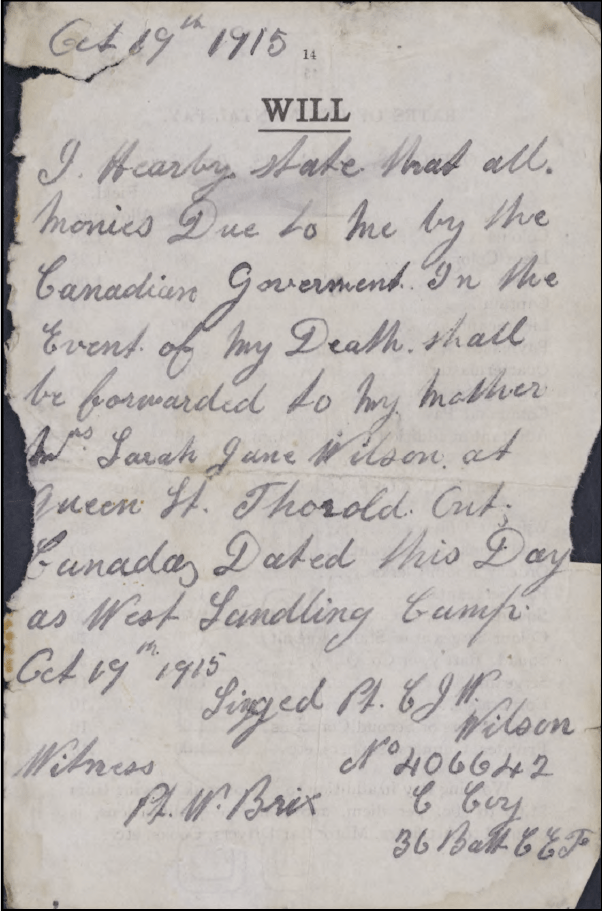 Oct 19th 1915
14
WILL
I. Hearby state that all.
monies Due to me by the
Canadian Goverment. In the
Event of my Death. shall
be forwarded to my mother
Mrs Sarah Jane Wilson. at
Queen St. Thorold. Ont.
Canada, Dated this Day
as West Sandling Camp.
Oct 19th 1915
Singed Pt. C J W.
Wilson
Witness No 406642
Pt. W. Brix C Coy
36 Batt C E F